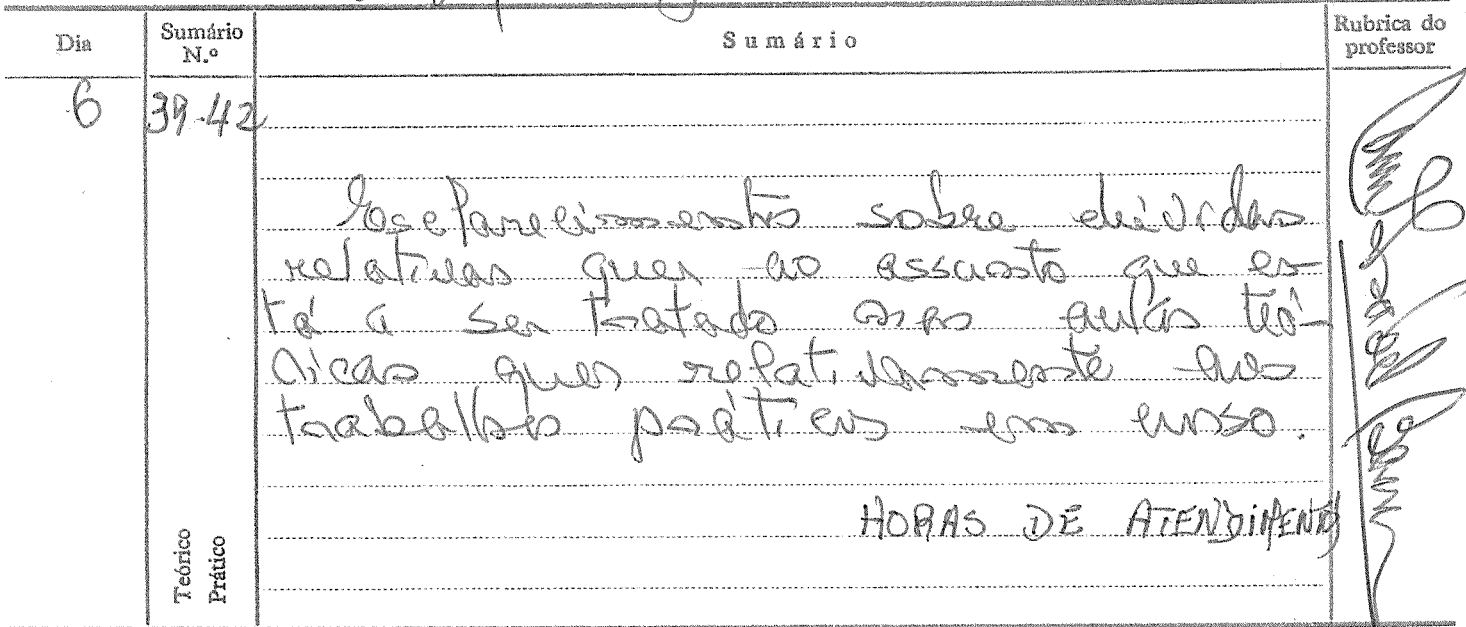 Dia Sumário N.º Sumário Rubrica do professor
6 39-42
Esclarecimentos sobre dúvidas
relativas quer ao assunto que es-
tá a ser tratado nas aulas teó-
ricas quer relativamente aos
trabalhos práticos em curso.
HORAS DE ATENDIMENTO
Teórico
Prático